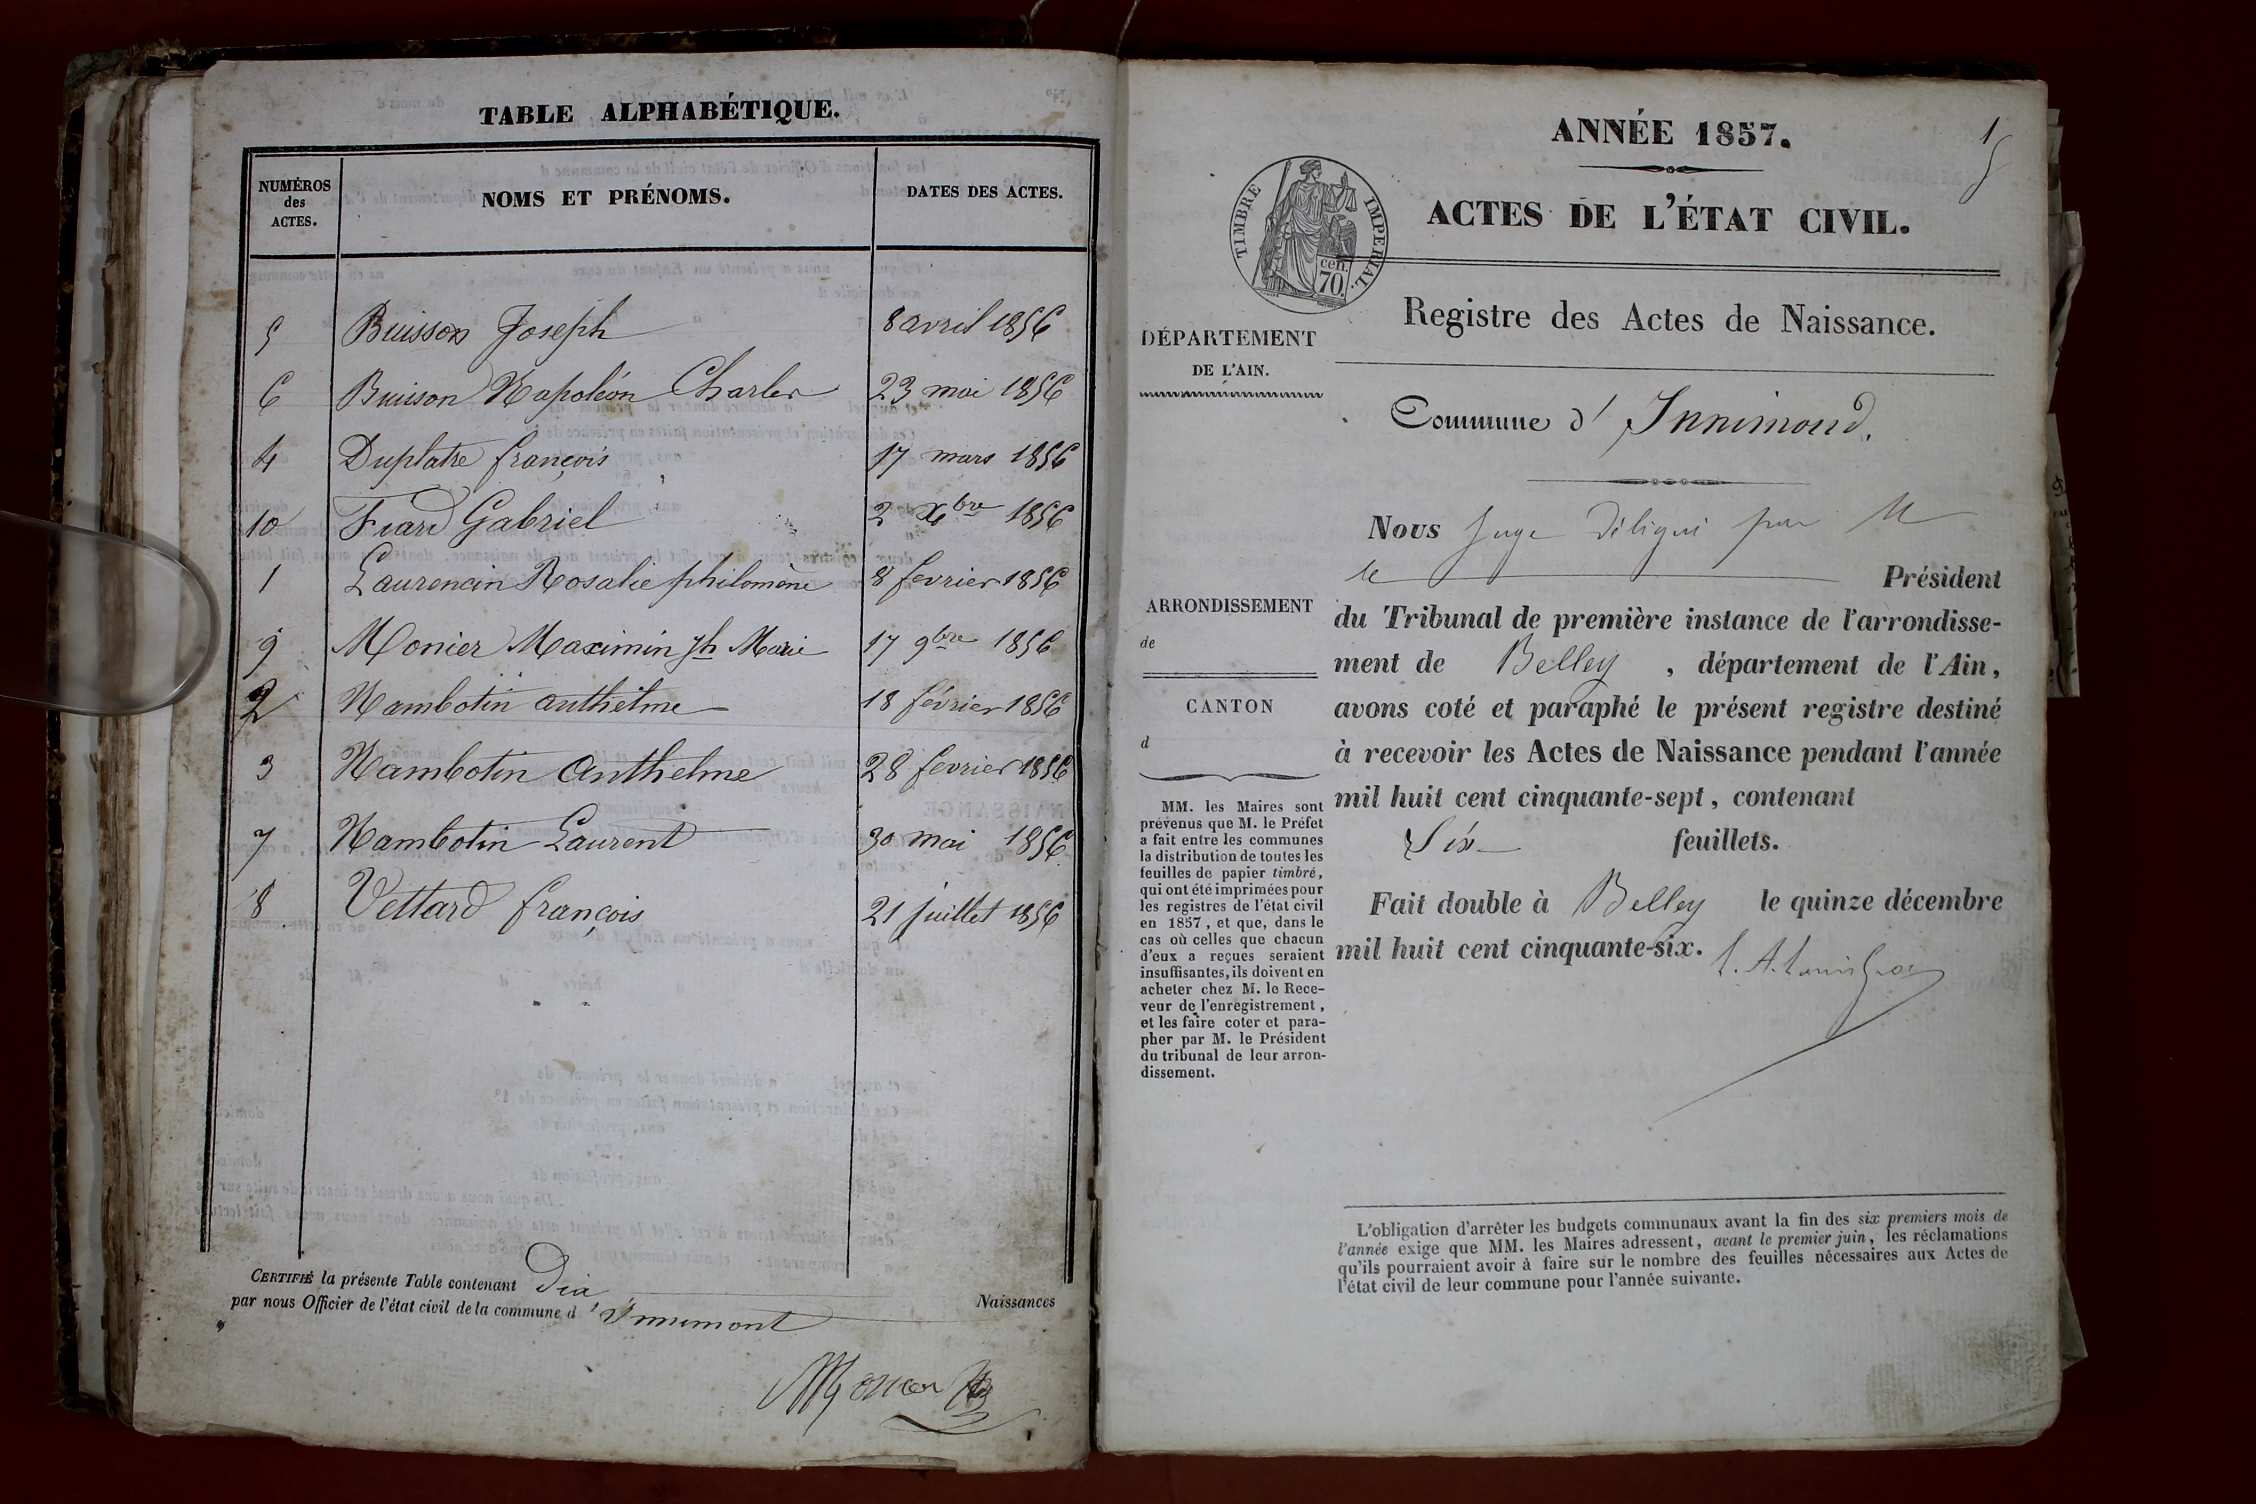 TABLE ALPHABÉTIQUE.
NUMÉROS des ACTES. NOMS ET PRÉNOMS. DATES DES ACTES.
5 Buisson Joseph 8 avril 1856
6 Buisson Napoléon Charles 23 mai 1856
4 Duplatre françois 17 mars 1856
10 Fiard Gabriel 2 Xbre 1856
1 Laurencin Rosalie philomène 8 fevrier 1856
9 Monier Maximin Jh Marie 17 9bre 1856
2 Nambotin anthelme 18 février 1856
3 Nambotin Anthelme 28 fevrier 1856
7 Nambotin Laurent 30 mai 1856
8 Vettard françois 21 juillet 1856
CERTIFIÉ la présente Table contenant Dix Naissances
par nous Officier de l'état civil de la commune d'Innimont
1
ANNÉE 1857.
ACTES DE L'ÉTAT CIVIL.
TIMBRE IMPERIAL.
cen.
70.
Registre des Actes de Naissance.
DÉPARTEMENT
DE L'AIN.
Commune d' Innimond.
Nous Juge Délégué par M
le Président
du Tribunal de première instance de l'arrondisse-
ment de Belley, département de l'Ain,
avons coté et paraphé le présent registre destiné
à recevoir les Actes de Naissance pendant l'année
mil huit cent cinquante-sept, contenant
Six feuillets.
Fait double à Belley le quinze décembre
mil huit cent cinquante-six.
ARRONDISSEMENT
de
CANTON
d
MM. les Maires sont
prévenus que M. le Préfet
a fait entre les communes
la distribution de toutes les
feuilles de papier timbré,
qui ont été imprimées pour
les registres de l'état civil
en 1857, et que, dans le
cas où celles que chacun
d'eux a reçues seraient
insuffisantes, ils doivent en
acheter chez M. le Rece-
veur de l'enregistrement,
et les faire coter et para-
pher par M. le Président
du tribunal de leur arron-
dissement.
L'obligation d'arrêter les budgets communaux avant la fin des six premiers mois de
l'année exige que MM. les Maires adressent, avant le premier juin, les réclamations
qu'ils pourraient avoir à faire sur le nombre des feuilles nécessaires aux Actes de
l'état civil de leur commune pour l'année suivante.